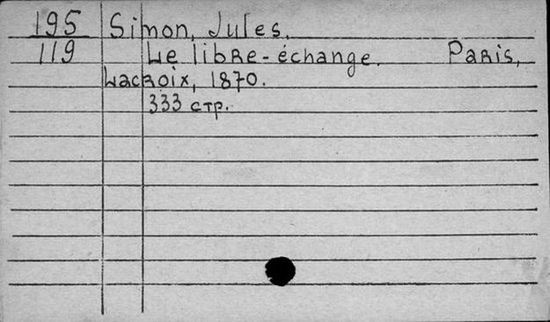 195 Simon, Jules.
119 Le libre-échange. Paris,
Lacroix, 1870.
333 стр.